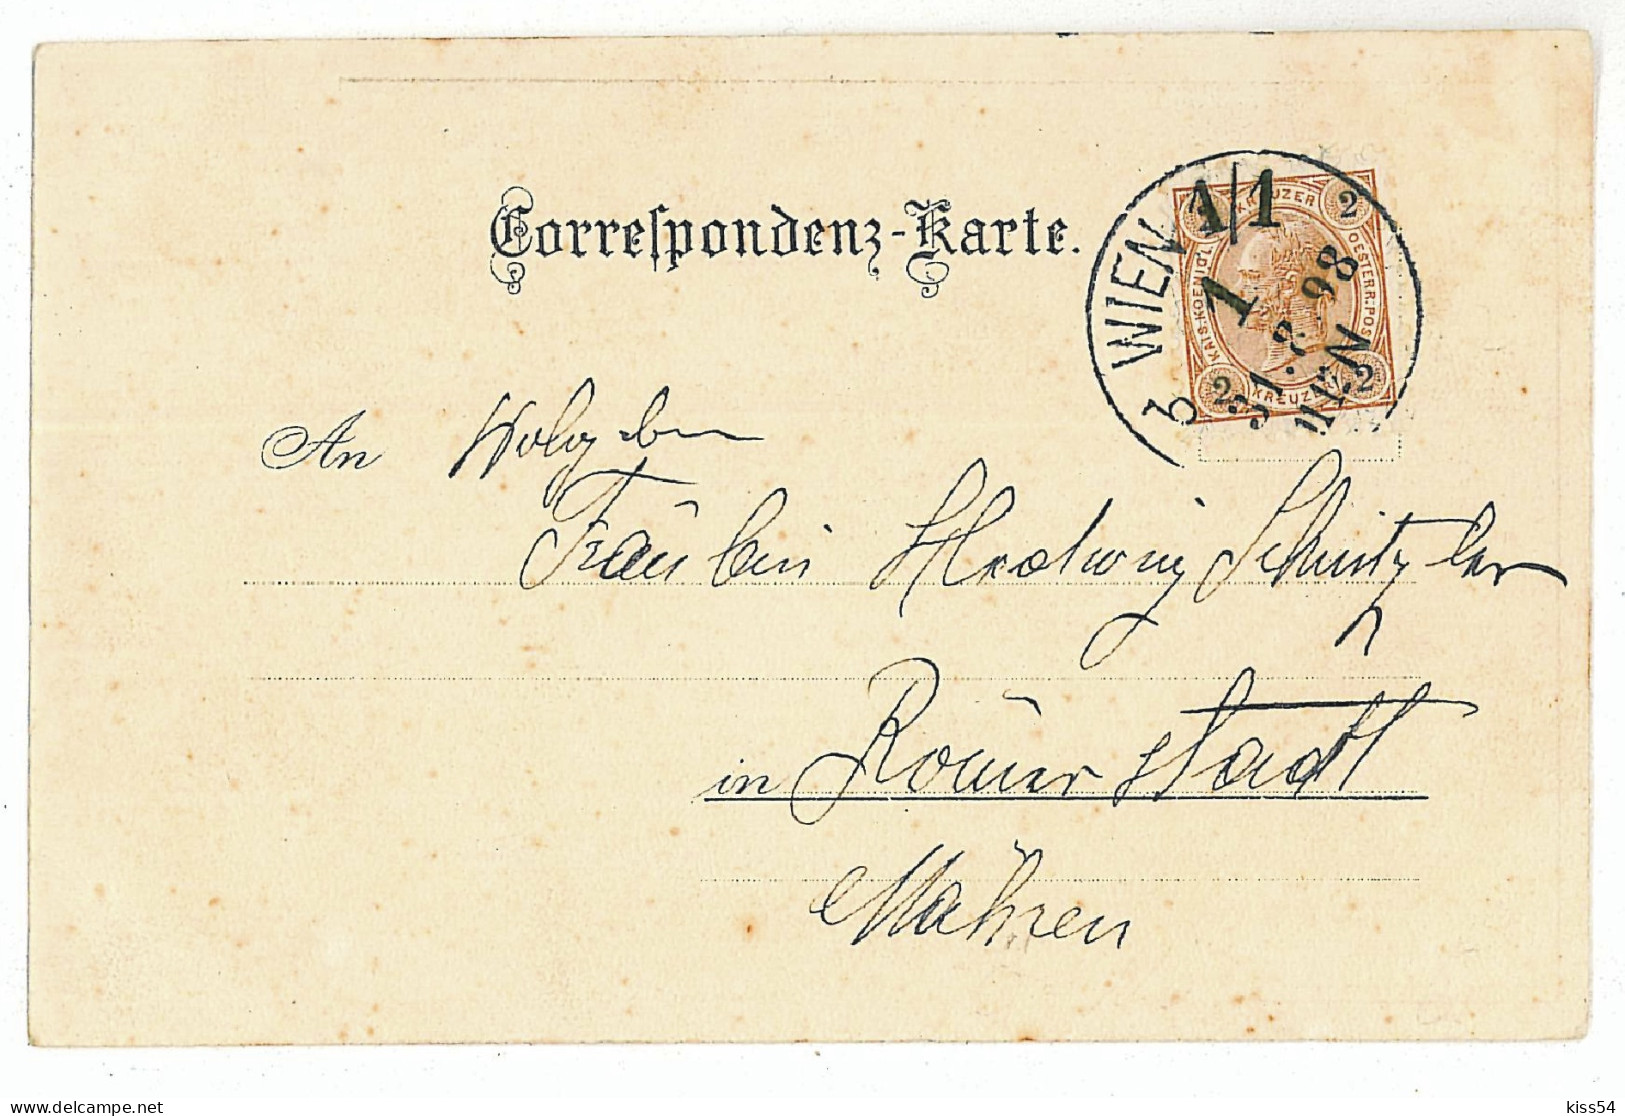 Correspondenz-Karte.
WIEN 1/1
1
31.8.98
WIEN
KREUZER
2
KAIS. KOENIGL.
OESTERR. POST
2
2
KREUZER
An Wolgeb
Fräulein Hedwig Schnitzler
in Römerstadt
Mähren
delcampe.net
kiss54